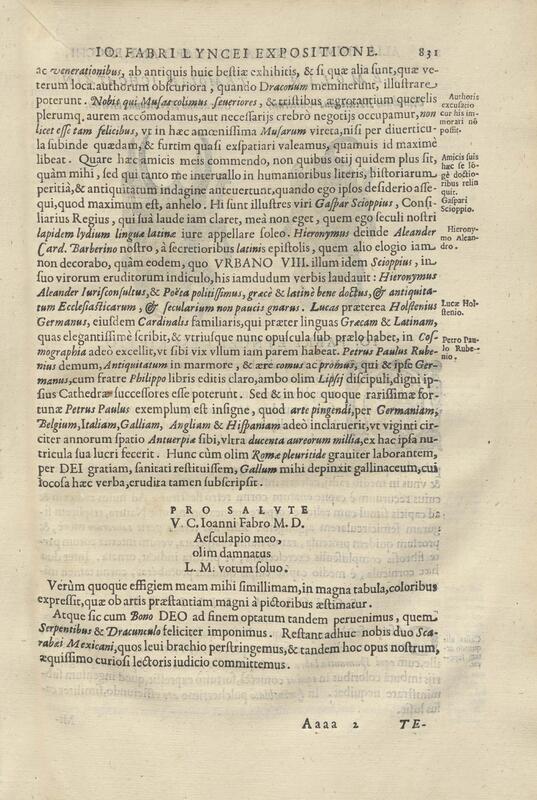 IO. FABRI LYNCEI EXPOSITIONE. 831
ac venerationibus, ab antiquis huic bestiæ exhibitis, & si quæ alia sunt, quæ ve-
terum loca authorum obscuriora, quando Draconum meminerunt, illustrare
poterunt. Nobis qui Musas colimus seueriores, & tristibus ægrotantium querelis
plerumq. aurem accõmodamus, aut necessarijs crebrò negotijs occupamur, non
licet esse tam felicibus, vt in hæc amœnissima Musarum vireta, nisi per diuerticu-
la subinde quædam, & furtim quasi exspatiari valeamus, quamuis id maximè
libeat. Quare hæc amicis meis commendo, non quibus otij quidem plus sit,
quàm mihi, sed qui tanto me interuallo in humanioribus literis, historiarum
peritiâ, & antiquitatum indagine anteuertunt, quando ego ipsos desiderio asse-
qui, quod maximum est, anhelo. Hi sunt illustres viri Gaspar Scioppius, Consi-
liarius Regius, qui suâ laude iam claret, meâ non eget, quem ego seculi nostri
lapidem lydium linguæ latinæ iure appellare soleo. Hieronymus deinde Aleander
Card. Barberino nostro, à secretioribus latinis epistolis, quem alio elogio iam
non decorabo, quàm eodem, quo VRBANO VIII. illum idem Scioppius, in
suo virorum eruditorum indiculo, his iamdudum verbis laudauit: Hieronymus
Aleander Iurisconsultus, & Poëta politissimus, græcè & latinè bene doctus, & antiquita-
tum Ecclesiasticarum, & secularium non paucis gnarus. Lucas præterea Holstenius
Germanus, eiusdem Cardinalis familiaris, qui præter linguas Græcam & Latinam,
quas elegantissimè scribit, & vtriusque nunc opuscula sub prælo habet, in Cos-
mographia adeò excellit, vt sibi vix vllum iam parem habeat. Petrus Paulus Rube-
nius demum, Antiquitatum in marmore, & ære comus ac promus, qui & ipse Ger-
manus, cum fratre Philippo libris editis claro, ambo olim Lipsij discipuli, digni ip-
sius Cathedræ successores esse poterunt. Sed & in hoc quoque rarissimæ for-
tunæ Petrus Paulus exemplum est insigne, quod arte pingendi, per Germaniam,
Belgium, Italiam, Galliam, Angliam & Hispaniam adeò inclaruerit, vt viginti cir-
citer annorum spatio Antuerpiæ sibi, vltra ducenta aureorum millia, ex hac ipsa nu-
tricula sua lucri fecerit. Hunc cùm olim Romæ pleuritide grauiter laborantem,
per DEI gratiam, sanitati restituissem, Gallum mihi depinxit gallinaceum, cui
iocosa hæc verba, erudita tamen subscripsit.
PRO SALVTE
V. C. Ioanni Fabro M. D.
Aesculapio meo,
olim damnatus
L. M. votum soluo.
Verùm quoque effigiem meam mihi simillimam, in magna tabula, coloribus
expressit, quæ ob artis præstantiam magni à pictoribus æstimatur.
Atque sic cum Bono DEO ad finem optatum tandem peruenimus, quem
Serpentibus & Dracunculo feliciter imponimus. Restant adhuc nobis duo Sca-
rabæi Mexicani, quos leui brachio perstringemus, & tandem hoc opus nostrum,
æquissimo curiosi lectoris iudicio committemus.
Aaaa 2 TE-
Authoris
excusatio
cur his im-
morari nõ
possit.
Amicis suis
hæc se lõ-
gè doctio-
ribus relin
quit.
Gaspari
Scioppio.
Hierony-
mo Alean-
dro.
Lucæ Hol-
stenio.
Petro Pau-
lo Rube-
nio.